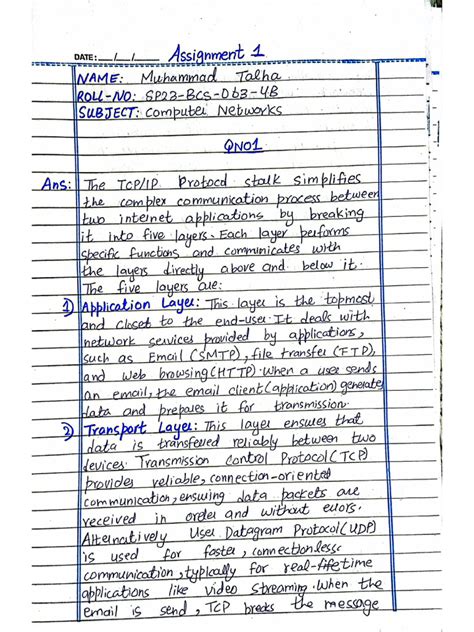 DATE: __/__/__ Assignment 1
NAME: Muhammad Talha
ROLL-NO: SP23-BCS-063-4B
SUBJECT: Computer Networks
QNO1
Ans: The TCP/IP Protocol stalk simplifies
the complex communication process between
two internet applications by breaking
it into five layers. Each layer performs
specific functions and communicates with
the layers directly above and below it.
The five layers are:
1) Application Layer: This layer is the topmost
and closet to the end-user. It deals with
network services provided by applications,
such as Email (SMTP), file transfer (FTP),
and web browsing (HTTP). When a user sends
an email, the email client (application) generates
data and prepares it for transmission.
2) Transport Layer: This layer ensures that
data is transfered reliably between two
devices. Transmission Control Protocol (TCP)
provides reliable, connection-oriented
communication, ensuring data packets are
received in order and without errors.
Alternatively User Datagram Protocol (UDP)
is used for faster, connectionless
communication, typically for real-lifetime
applications like video streaming. When the
email is send, TCP breaks the message